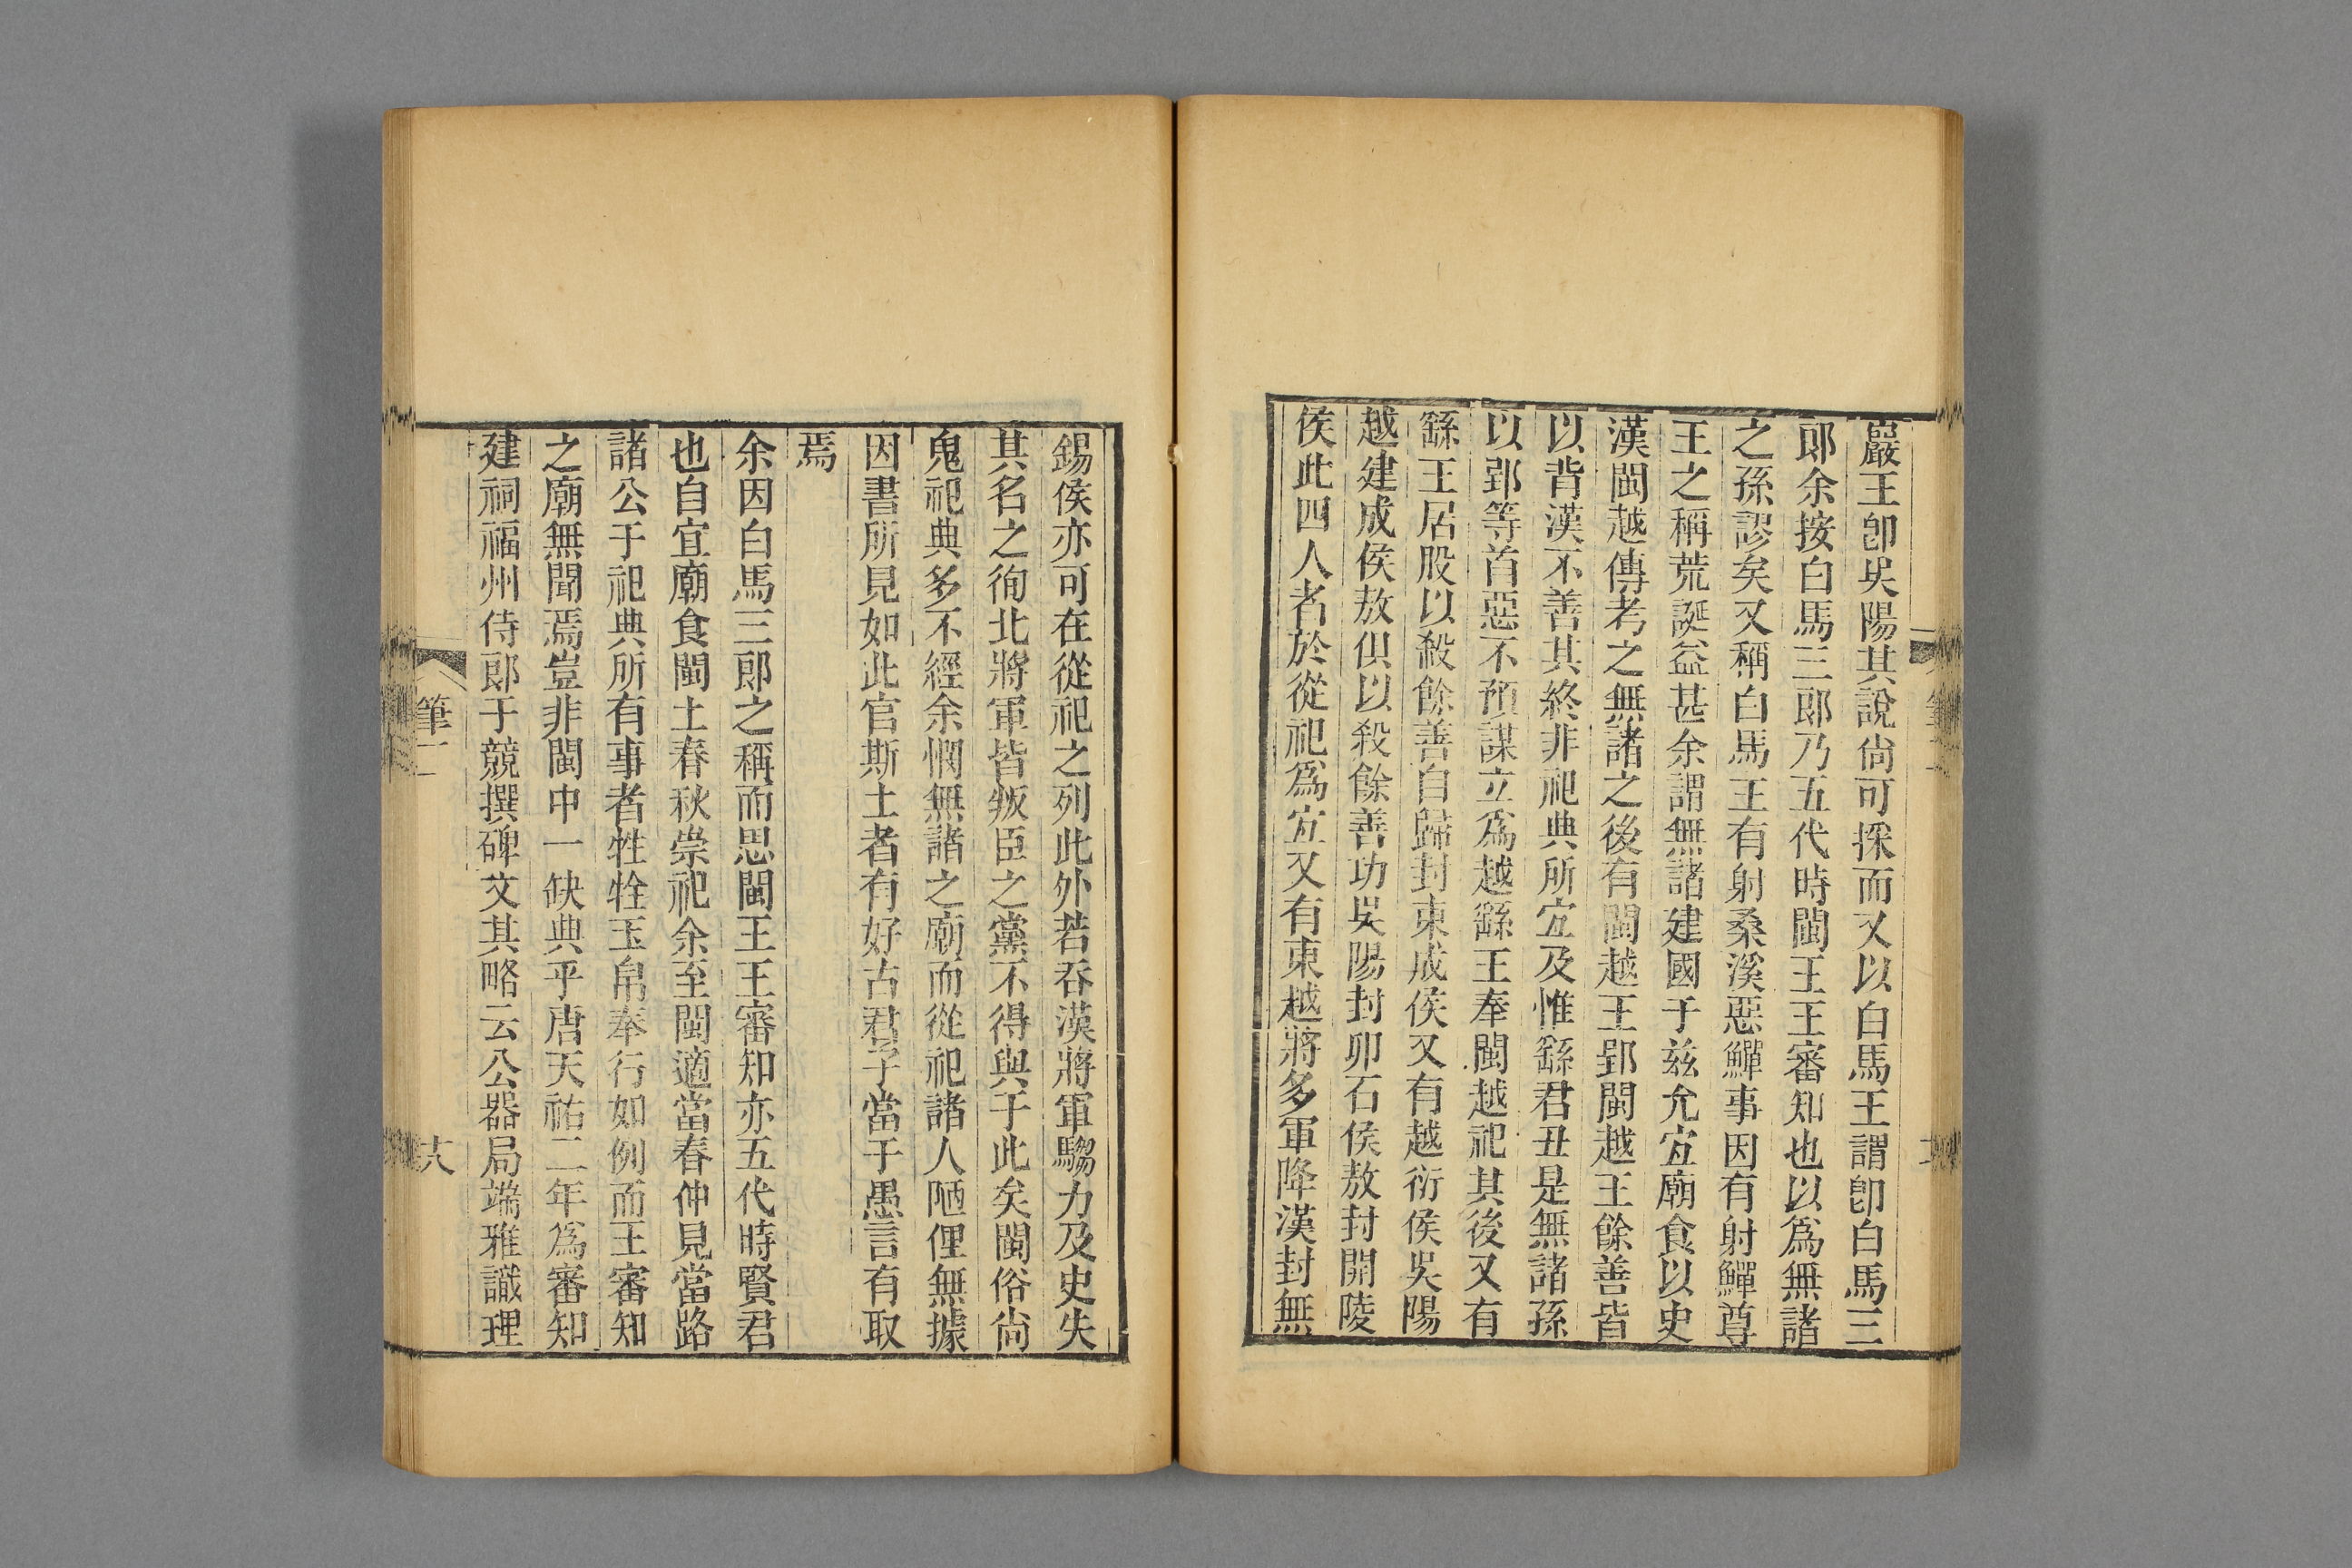 巖王卽吳陽其說尙可採而又以白馬王謂卽白馬三
郎余按白馬三郎乃五代時閩王王審知也以爲無諸
之孫謬矣又稱白馬王有射桑溪惡鱓事因有射鱓尊
王之稱荒誕益甚余謂無諸建國于兹允宜廟食以史
漢閩越傳考之無諸之後有閩越王郢閩越王餘善皆
以背漢不善其終非祀典所宜及惟繇君丑是無諸孫
以郢等首惡不預謀立爲越繇王奉閩越祀其後又有
繇王居股以殺餘善自歸封東成侯又有越衍侯吳陽
越建成侯敖俱以殺餘善功吳陽封卯石侯敖封開陵
侯此四人者於從祀爲宜又有東越將多軍降漢封無
錫侯亦可在從祀之列此外若吞漢將軍騶力及史失
其名之徇北將軍皆叛臣之黨不得與于此矣閩俗尙
鬼祀典多不經余憫無諸之廟而從祀諸人陋俚無據
因書所見如此官斯土者有好古君子當于愚言有取
焉
余因白馬三郎之稱而思閩王王審知亦五代時賢君
也自宜廟食閩土春秋崇祀余至閩適當春仲見當路
諸公于祀典所有事者牲牷玉帛奉行如例而王審知
之廟無聞焉豈非閩中一缺典乎唐天祐二年爲審知
建祠福州侍郎于競撰碑文其略云公器局端雅識理
筆二
十八